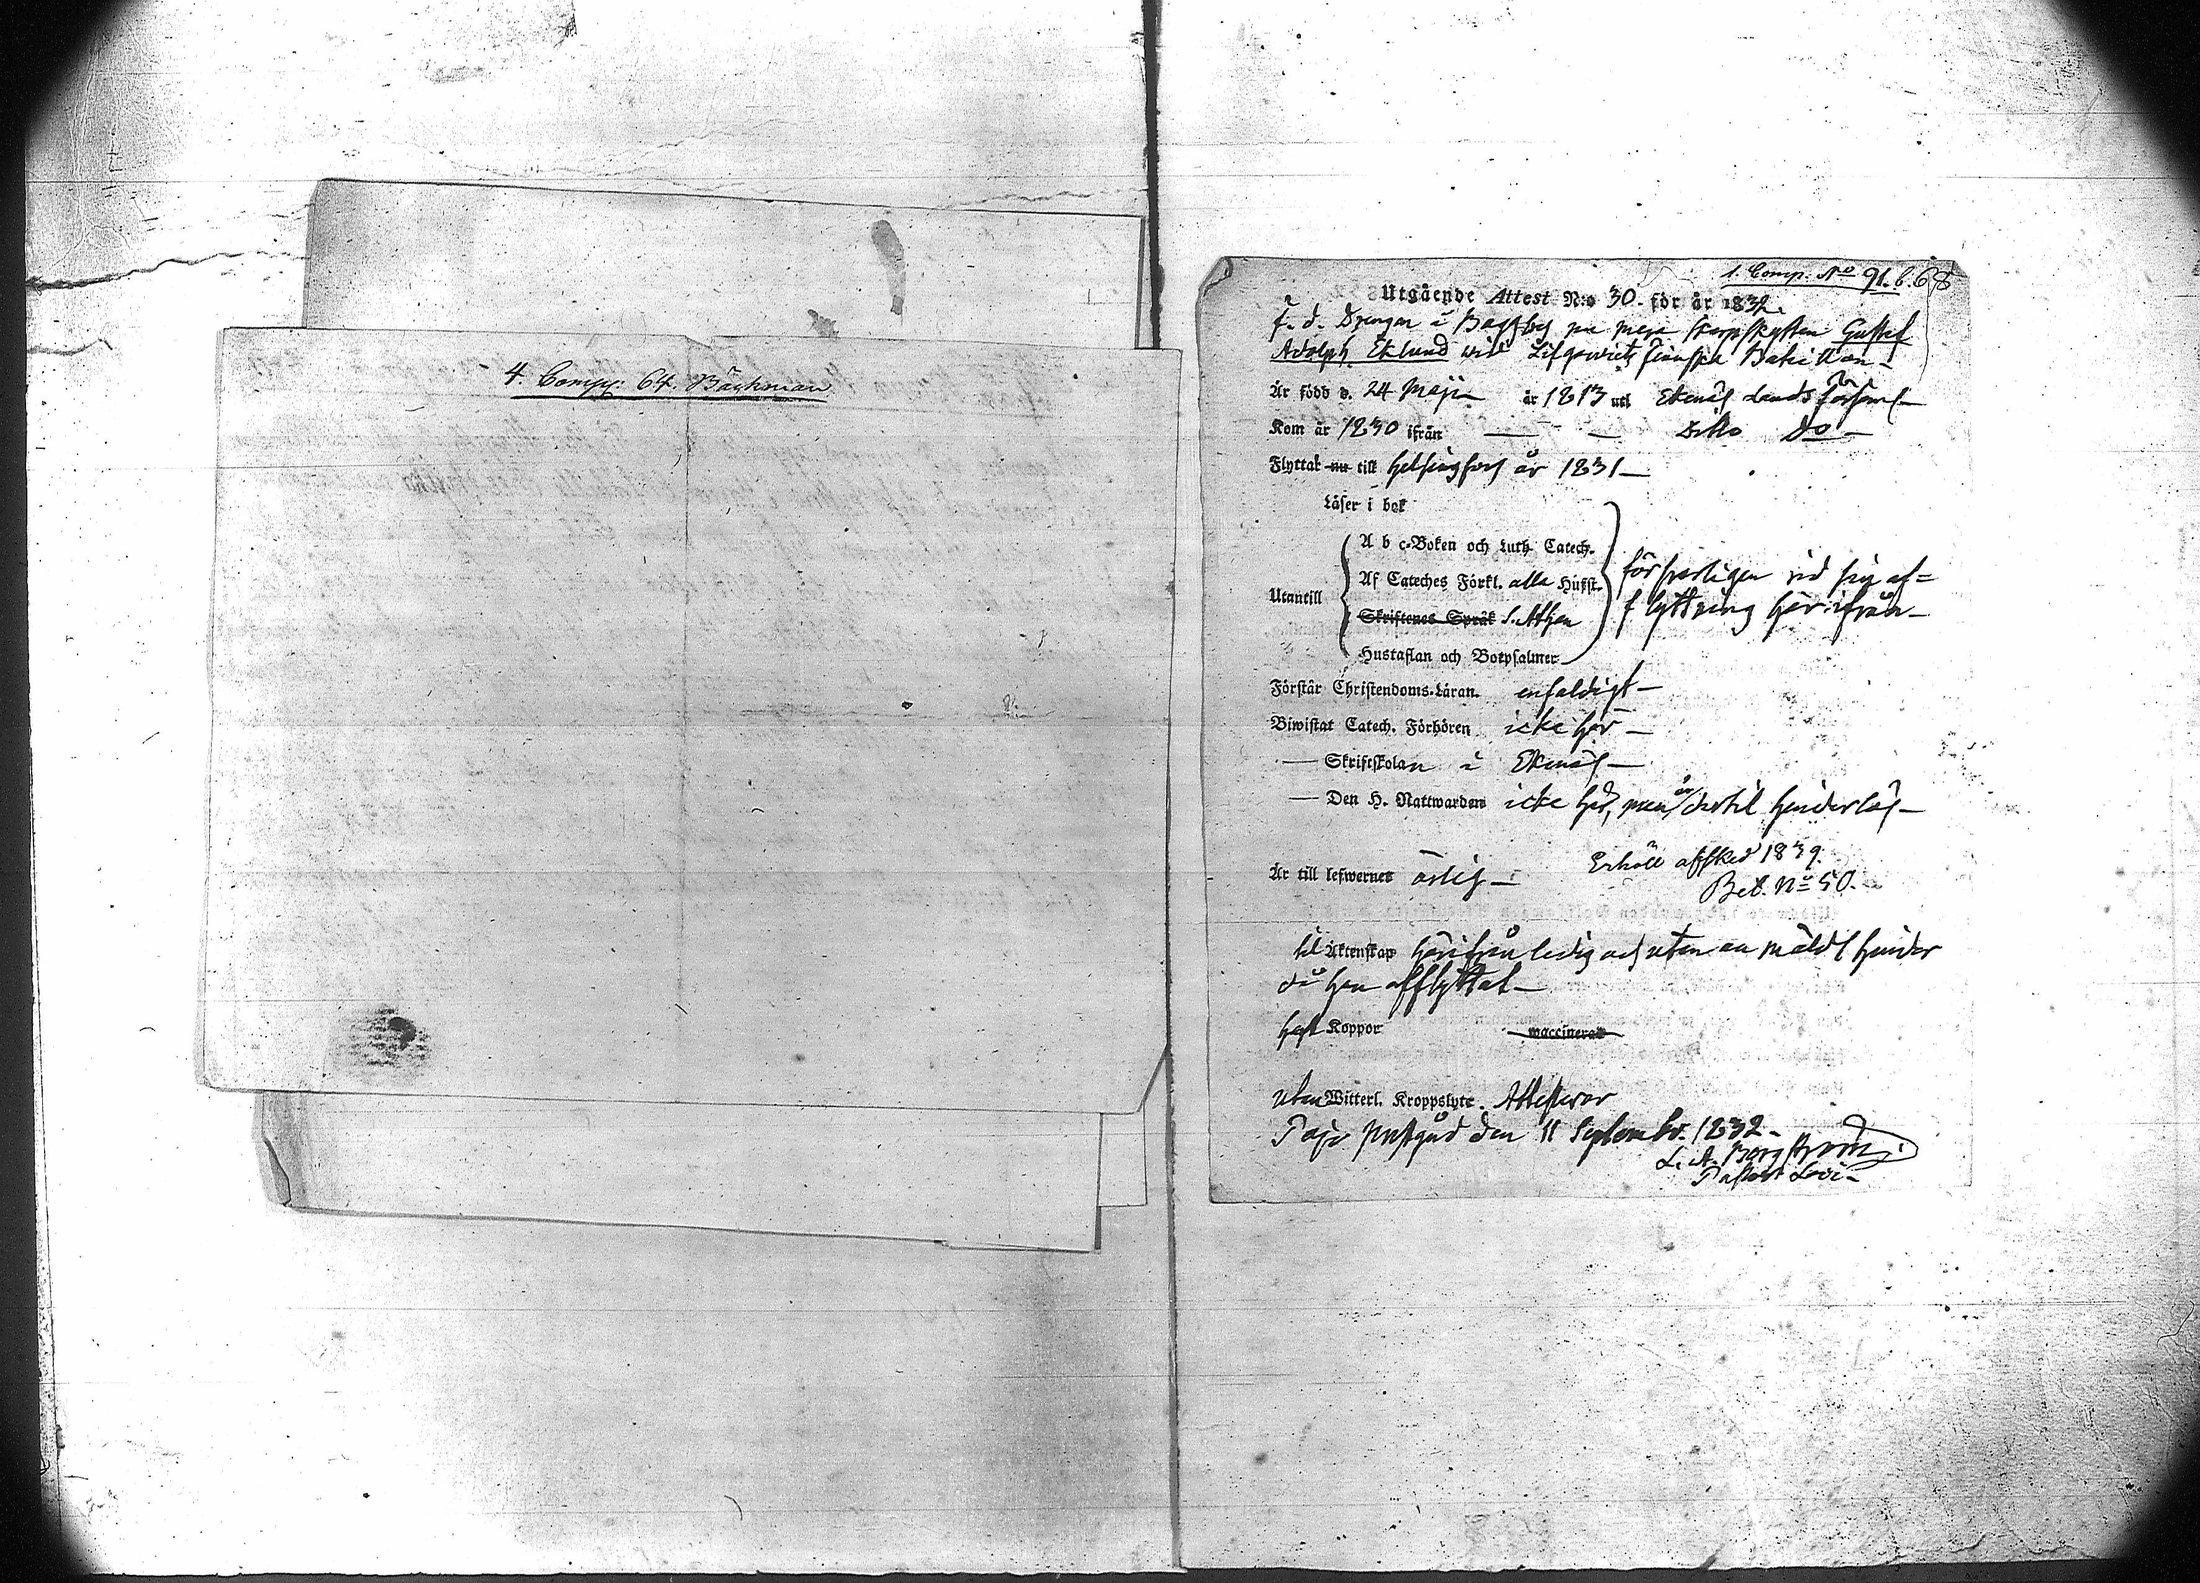 4. Comp: 64. Bäckman
1. Comp. No 91. b. 68
Utgående Attest N:o 30. för år 1832.
f. d. Drengen i Baggby nu mera skarpskytten Gustaf
Adolph Eklund vid Lifgardets Finska Bataillon
Är född d. 24 Maji år 1813 uti Ekenäs Lands Församl
Kom år 1830 ifrån — — ditto Do —
Flyttat nu till Helsingfors år 1831 —
Läser i bok
A b c-Boken och Luth. Catech.
Af Cateches Förkl. alla Hufst.
försvarligen vid sin af=
Utantill
Skriftenes Språk S. Athan
flyttning härifrån —
Hustaflan och Botpsalmer
Förstår Christendoms-Läran. enfaldigt —
Biwistat Catech. Förhören icke här —
— Skriftskolan i Ekenäs —
— Den H. Nattwarden icke här, men är dertil hinderlös —
Erhöll afsked 1839.
Är till lefwernet ärlig —
Bet. No 50.
til Äktenskap härifrån ledig och utan anmäldt hinder
då han afflyttat —
haft Koppor waccinerad
utan Witterl. Kroppslyte. Attesterar
Pojo prestgård den 11 Septembr. 1832 —
L. A. Borgström
Pastors